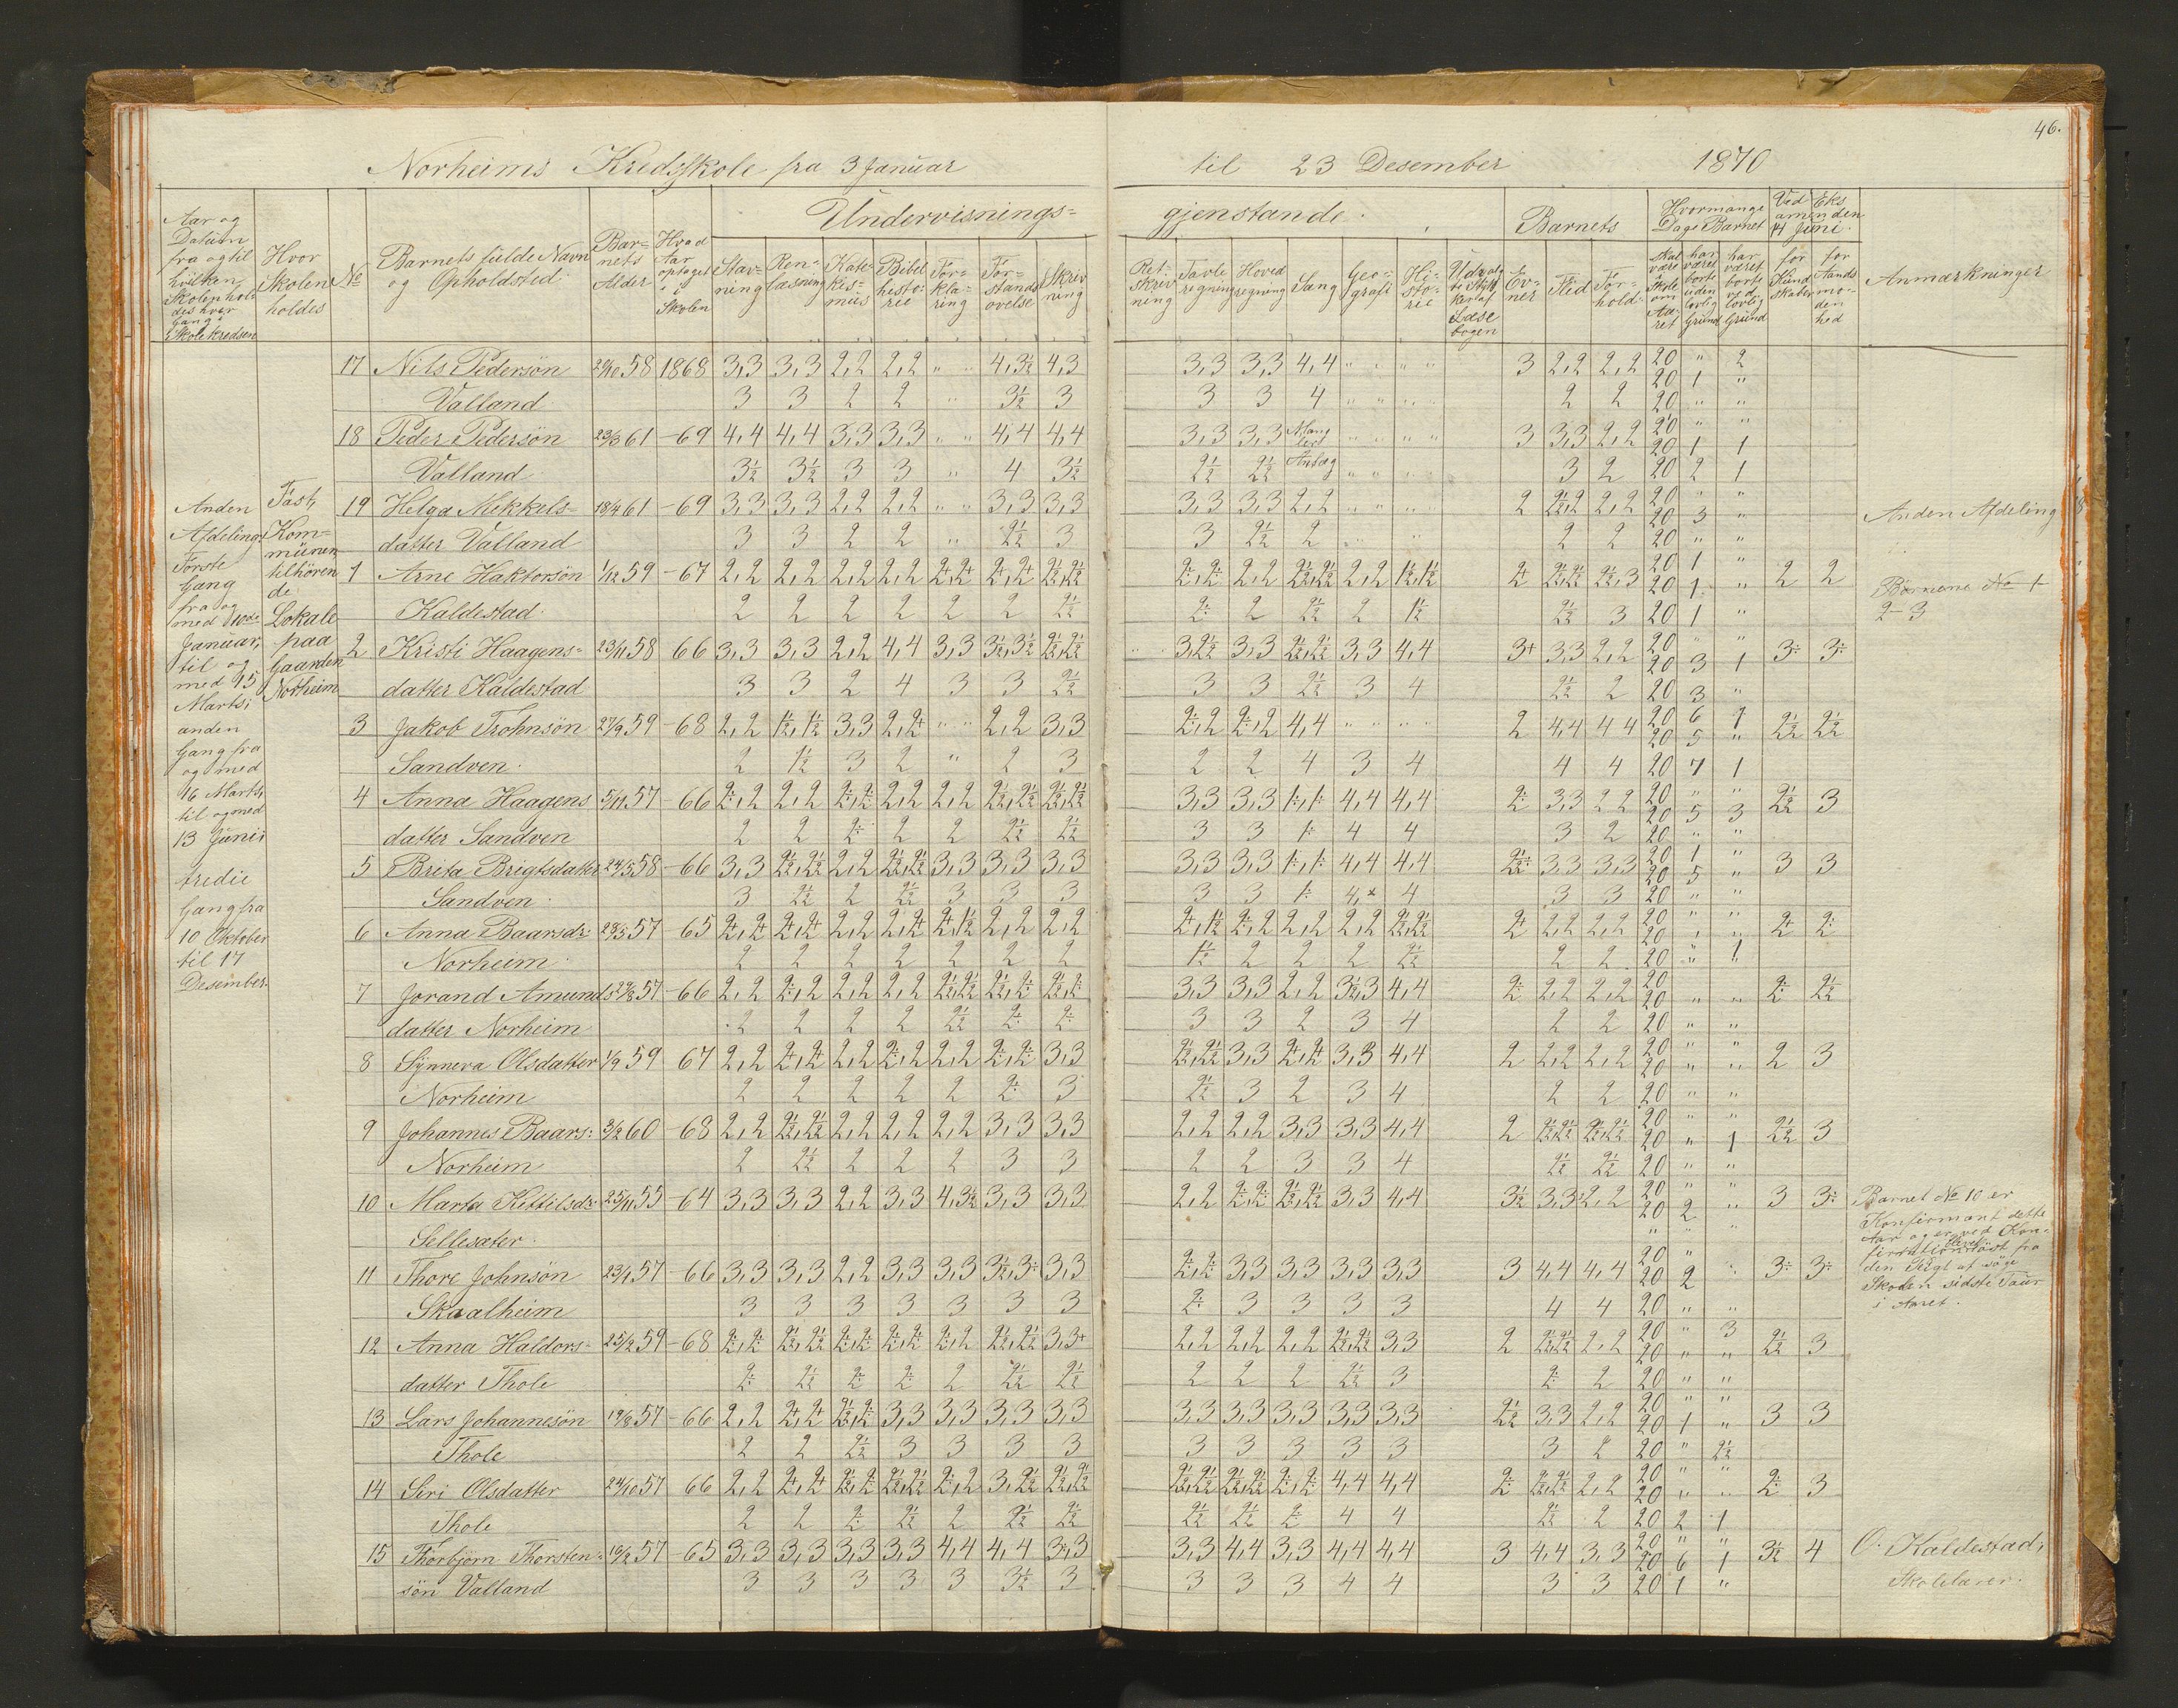 46.
Norheims Kredsskole fra 3 Januar til 23 Desember 1870
Aar og Datum fra og til hvilken Skolen holdes hver Gang i Skolekredsen
Hvor Skolene holdes
No
Barnets fulde Navn og Opholdsted
Barnets Alder
Hvad Aar optaget i Skolen
Undervisnings= gjenstande.
Stavning
Renlæsning
Katekismus
Bibelhistorie
Forklaring
Forstandsøvelse
Skrivning
Retskrivning
Tavleregning
Hovedregning
Sang
Geografi
Historie
Læsebogen
Barnets
Evner
Flid
Forhold
Hvormange Dage Barnet
skal være i Skole om Aaret
har været borte uden lovlig Grund
har været borte ved lovlig Grund
Ved Eksamen den 14 Juni.
for Kundskaber
for Aandsmodenhed
Anmærkninger
17 Nils Pedersön 29/10 58 1868 3,3 3,3 2,2 2,2 " " 4,3½ 4,3 3,3 3,3 4,4 " " " " 3 2,2 2,2 20 " 2
20 1 "
Valland 3 3 2 2 " 3½ 3 3 3 4 " " " " 2 2 20 " "
18 Peder Pedersön 23/3 61 -69 4,4 4,4 3,3 3,3 " " 4,4 4,4 3,3 3,3 Manglert " " " " 3 3,3 2,2 20 " "
20 1 1
Valland 3½ 3½ 3 3 " 4 3½ 2½ 2½ Anlæg " " " " 3 2 20 2 1
19 Helga Mekkels= 18/4 61 -69 3,3 3,3 2,2 2,2 " " 3,3 3,3 3,3 3,3 2,2 " " " " 2 2½,2 2,2 20 " "
20 3 "
datter Valland 3 3 2 2 " 2½ 3 3 2½ 2 " " 2 2 20 " "
Anden Afdeling Förste Gang fra og med Januar, til og med 15 Marts; anden Gang fra og med 16 Marts, til og med 13 Juni; tredie Gang fra 10 Oktober til 17 Desember.
Fast, Kommunen tilhörende Lokale paa Gaarden Norheim
Anden Afdeling
1 Arne Haktorsön 1/12 59 -67 2,2 2,2 2,2 2,2 2,2+ 2,2+ 2½,2½ 2÷,2÷ 2,2 2½,2½ 2,2 1½,1½ 2+ 2½,2½ 2½,3 20 1 "
20 1 " 2 2
Kaldestad 2 2 2 2 2 2 2½ 2÷ 2 2½ 2 1½ 2½ 3 20 1 "
Börnene No 1
2-3
2 Kristi Haagens= 23/11 58 66 3,3 3,3 2,2 4,4 3,3 3½,3½ 2½,2½ 3,2½ 3,3 2½,2½ 3,3 4,4 3+ 3,3 2,2 20 " "
20 3 1 3÷ 3÷
datter Kaldestad 3 3 2 4 3 3 2½ 3 3 2½ 3 4 2½ 2 20 3 "
3 Jakob Trohnsön 27/9 59 -68 2,2 1½,1½ 3,3 2,2+ " " 2,2 3,3 2÷,2 2÷,2 4,4 " " " " 2 4,4 4 4 20 6 1
20 5 " 2½ 2½
Sandven 2 1½ 3 2 " 2 3 2 2 4 3 4 4 4 20 7 1
4 Anna Haagens 5/11 57 -66 2÷,2 2,2 2÷,2÷ 2,2 2,2 2½,2½ 2½,2½ 3,3 3,3 1÷,1÷ 4,4 4,4 2÷ 3,3 2 2 20 " "
20 5 3 2½ 3
datter Sandven 2 2 2÷ 2 2 2½ 2½ 3 3 1÷ 4 4 3 2 20 " "
5 Brita Brigtsdatter 24/5 58 -66 3,3 2½,2½ 2,2 2½,2½ 3,3 3,3 3,3 3,3 3,3 1÷,1÷ 4,4 4,4 2½÷ 3,3 3,3 20 1 "
20 5 " 3 3
Sandven 3 2½ 2 2½ 3 3 3 3 3 1÷ 4,× 4 3 3 20 " "
6 Anna Baarsdr: 28/3 57 -65 2+,2+ 2+,2+ 2,2 2,2+ 2+,1½ 2,2 2,2 2+,1½ 2÷,2 2,2 2,2 2½,2½ 2+ 2,2 2,2 20 " "
20 " " 2+ 2÷
Norheim 2 2 2 2 2 2 2 1½ 2 2 2 2½ 2 2 20 " 1
7 Jorand Amunds 27/8 57 -66 2,2 2÷,2 2,2 2,2 2½,2½ 2½,2÷ 2½,2÷ 3,3 3,3 2,2 3½,3 4,4 2÷ 2,2 2,2 20
20 " " 2÷ 2½
datter Norheim 2 2 2 2 2½ 2÷ 2÷ 3 3 2 3 4 2 2 20 " "
8 Synneva Olsdatter 1/9 59 67 2,2 2+,2+ 2,2 2÷,2 2,2 2÷,2÷ 3,3 2½,2½ 3,3 2+,2+ 3,3 4,4 2 2,2 2,2 20 " "
20 " " 2 3
Norheim 2 2 2 2 2 2÷ 3 2½ 3 2 3 4 2 2 20 " "
9 Johannes Baars: 3/2 60 -68 2,2 2½,2½ 2,2 2,2 2,2 3,3 3,3 2,2 2,2 3,3 3,3 4,4 2 2½,2½ 2½,2½ 20 " "
20 " 1 2½ 3
Norheim 2 2½ 2 2 2 3 3 2 2 3 3 4 2½ 2½ 20 " "
10 Marta Kittilsdr: 25/11 55 -64 3,3 3,3 2,2 3,3 4,3½ 3,3 3,3 2,2 2÷,2÷ 2½,2½ 3,3 4,4 3½ 3,3 2,2 20 " "
20 2 " 3 3÷
Sellesæter " " "
Barnet No 10 er
Konfirmant dette
Aar og er ved Kon-
firmation löst fra
den Pligt at söge
Skolen sidste Taur
i Aaret.
11 Thore Johnsön 23/1 57 -66 3,3 3,3 2,2 3,3 3,3 3½,3÷ 3,3 2÷,2÷ 3,3 3,3 3,3 3,3 3 4,4 4,4 20 "
20 2 " 3÷ 3÷
Skaalheim 3 3 3 3 3 3 3 2÷ 3 3 3 3 4 4 20 " "
12 Anna Haldors- 25/2 59 -68 2÷,2÷ 2½,2½ 2÷,2÷ 2÷,2÷ 2÷,2 2½,2½ 3,3+ 2,2 2,2 2,2 2½,2½ 3,3 2 2½,2½ 2,2 20 " 3
20 " " 2½ 3
datter Thole 2÷ 2½ 2÷ 2÷ 2 2½ 2½ 2 2 2 2½ 3 2÷ 2 20 " "
13 Lars Johannesön 19/8 57 -66 2,2 2+,2+ 2½,2÷ 3,3 3,3 3,3 3,3 3,3 3,3 3,3 3,3 3,3 2½ 3,3 2,2 20 " "
20 1 " 3 3
Thole 2 2 2½ 3 3 3 3 3 3 3 3 3 3 2 20 " 2½
14 Siri Olsdatter 24/10 57 66 2,2 2+,2+ 2½,2÷ 2½,2½ 2÷,2 3,2½ 2½,2½ 2½,2½ 2½,2½ 2÷,2÷ 4,4 4,4 2÷ 2½,2½ 2,2 20 " "
20 " " 2÷ 3
Thole 2 2 2÷ 2½ 2 2½ 2½ 2½ 2½ 2÷ 4 4 2½ 2 20 2 1
15 Thorbjörn Thorsten= 19/2 57 -65 3,3 3,3 3,3 3,3 4,4 4,4 3½,3 3,3 4,4 3,3 4,4 4,4 3 4,4 3,3 20 " "
20 6 1 3½ 4
sön Valland 3 3 3 3 3 3½ 3 3 3 3 4 4 3 3 20 1 "
O. Kaldestad,
Skolelærer.